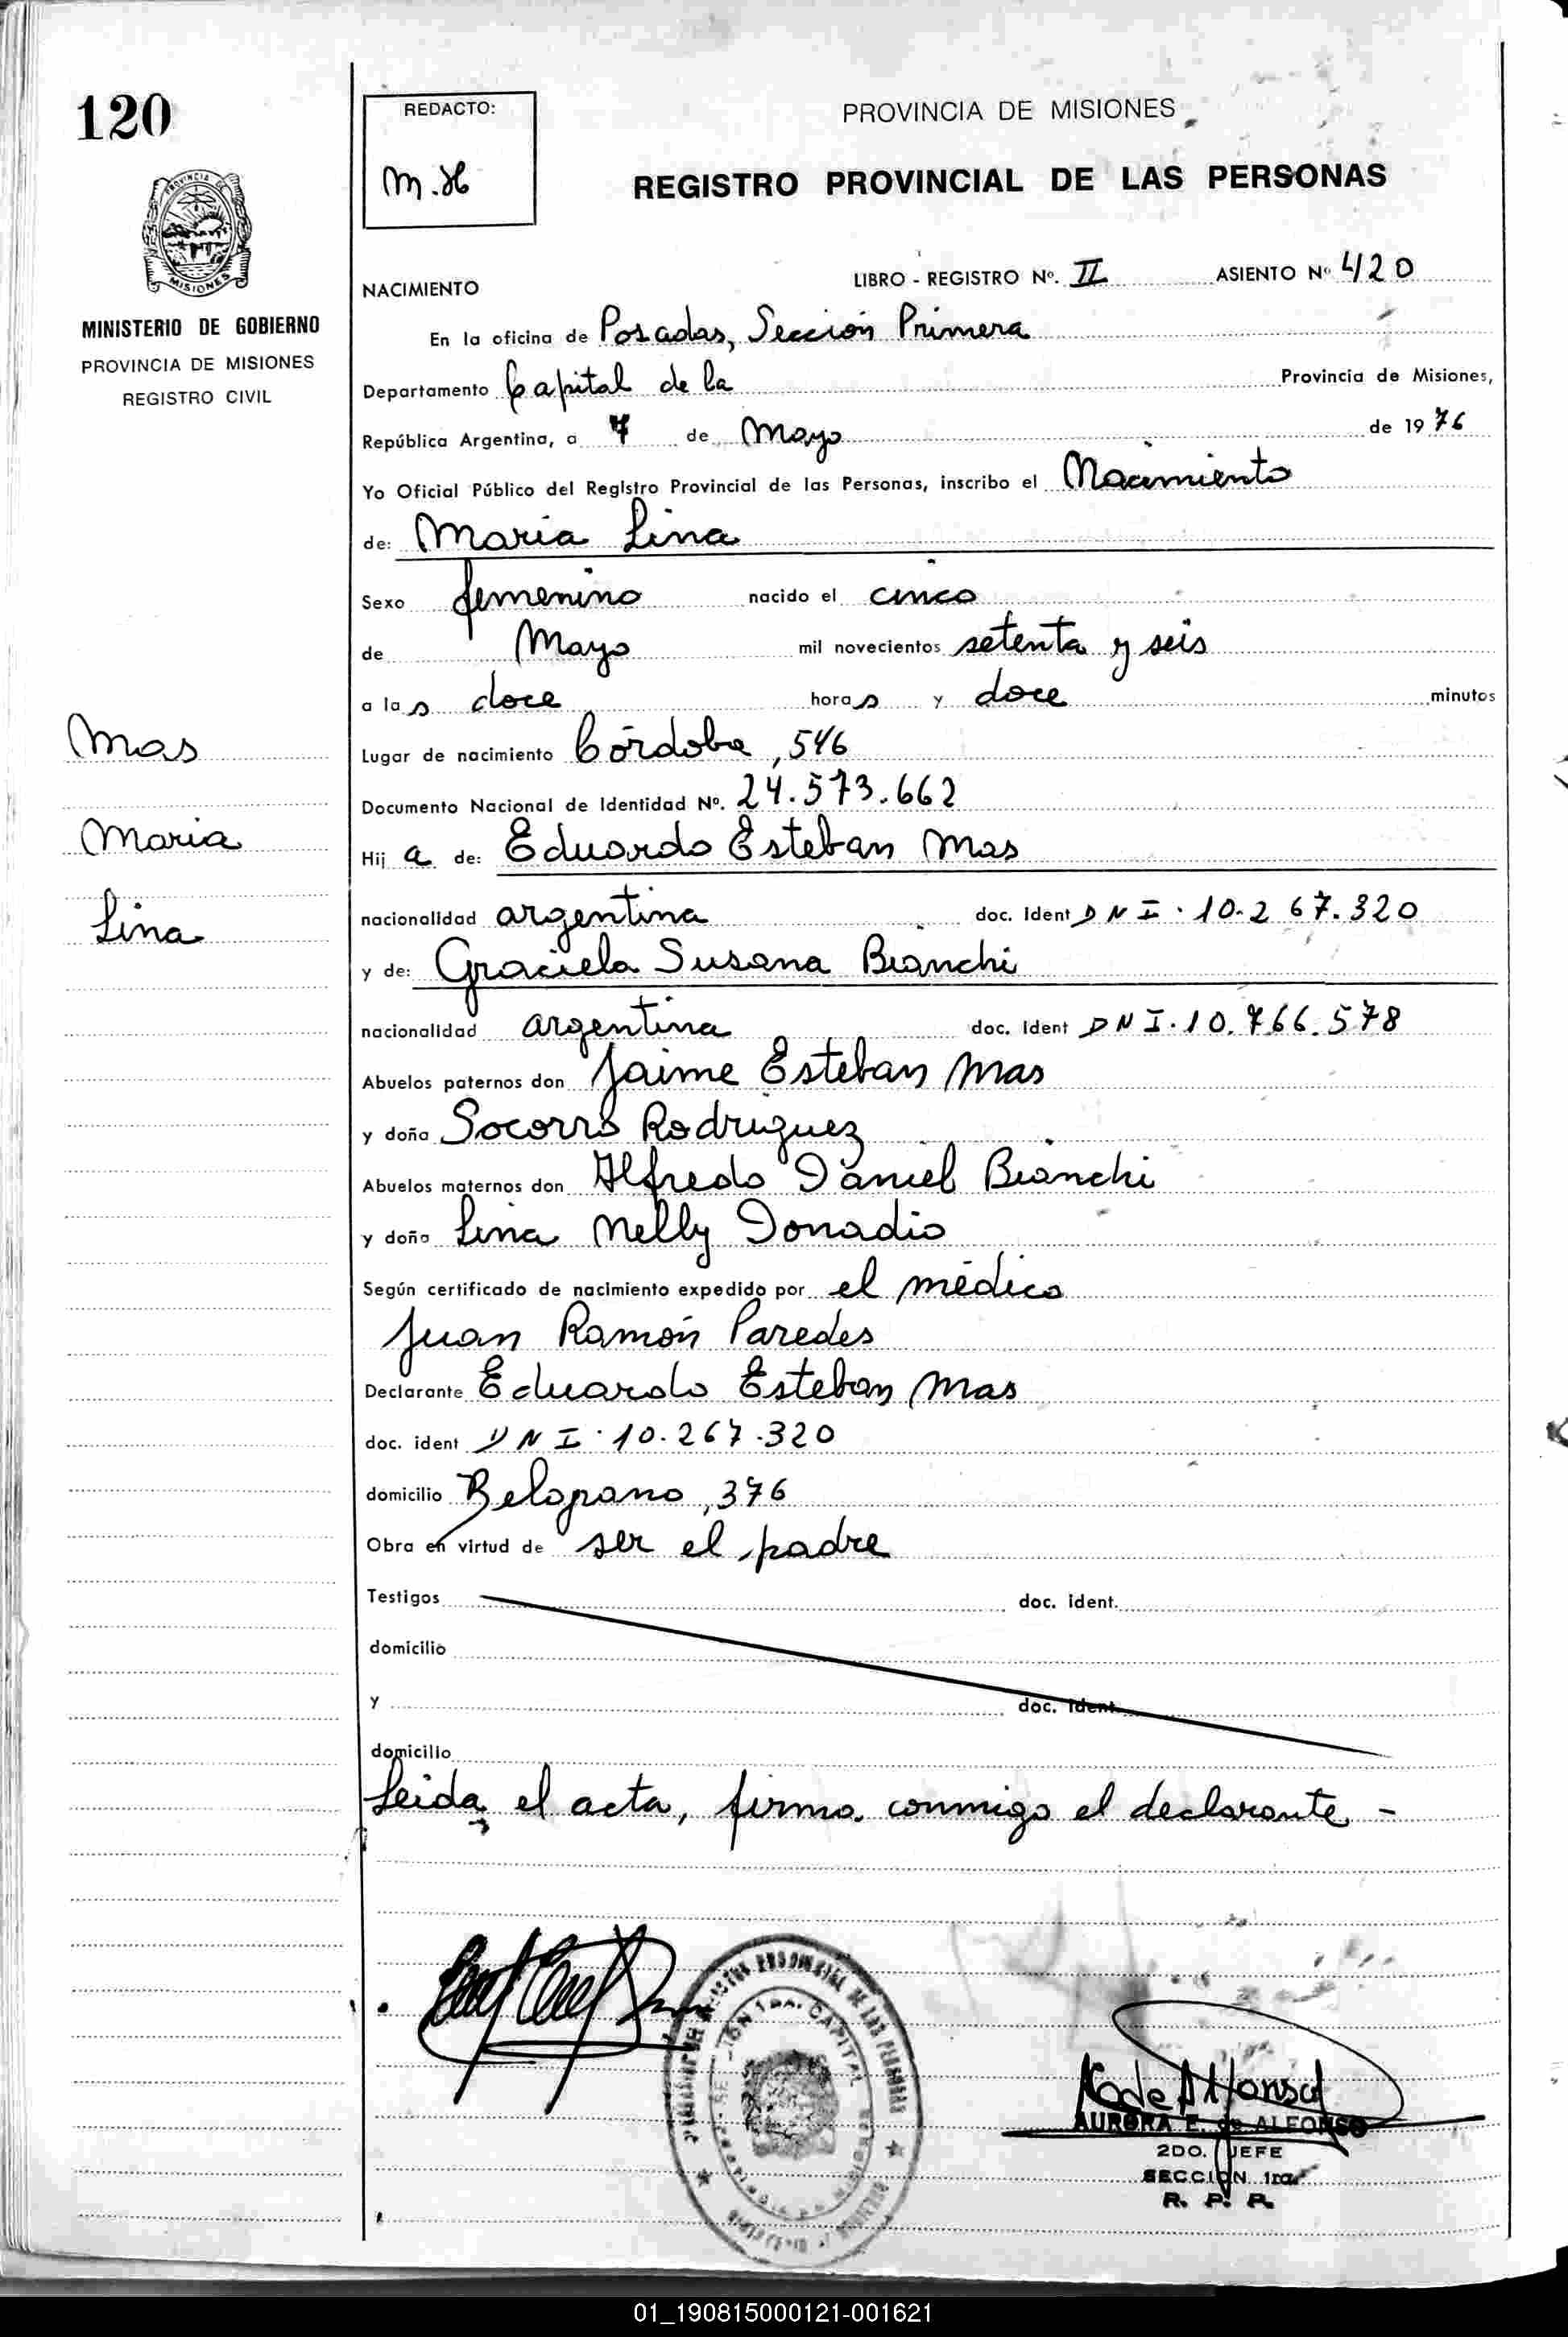 120
REDACTO:
M.H
PROVINCIA DE MISIONES
REGISTRO PROVINCIAL DE LAS PERSONAS
PROVINCIA DE
MISIONES
MINISTERIO DE GOBIERNO
PROVINCIA DE MISIONES
REGISTRO CIVIL
NACIMIENTO
LIBRO - REGISTRO Nº. II ASIENTO Nº 420
En la oficina de Posadas, Sección Primera
Departamento Capital de la Provincia de Misiones,
República Argentina, a 7 de Mayo de 1976
Yo Oficial Público del Registro Provincial de las Personas, inscribo el Nacimiento
de: Maria Lina
Sexo femenino nacido el cinco
de Mayo mil novecientos setenta y seis
a las doce horas y doce minutos
Mas
Lugar de nacimiento Córdoba, 546
Documento Nacional de Identidad Nº. 24.573.662
Maria
Hija de: Eduardo Esteban Mas
Lina
nacionalidad argentina doc. Ident DNI. 10.267.320
y de: Graciela Susana Bianchi
nacionalidad argentina doc. Ident DNI. 10.766.578
Abuelos paternos don Jaime Esteban Mas
y doña Socorro Rodriguez
Abuelos maternos don Alfredo Daniel Bianchi
y doña Lina Nelly Donadio
Según certificado de nacimiento expedido por el médico
Juan Ramón Paredes
Declarante Eduardo Esteban Mas
doc. ident DNI. 10.267.320
domicilio Belgrano, 376
Obra en virtud de ser el padre
Testigos doc. ident.
domicilio
y doc. ident
domicilio
Leida el acta, firma conmigo el declarante -
REGISTRO PROVINCIAL DE LAS PERSONAS
CAPITAL
AURORA E. de ALFONSO
2DO. JEFE
SECCION 1ra
R. P. P.
01_190815000121-001621